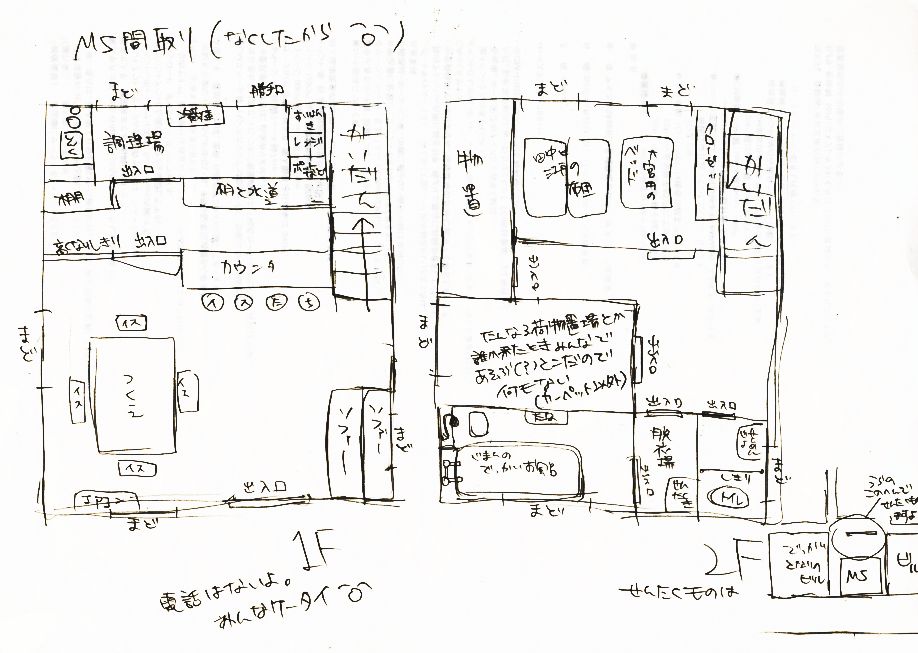 MS間取り(なくしたから
まど
勝手口
冷蔵庫
すいはんき
レンジ
ポット
調理場
かいだん
出入口
棚
棚と水道
出入口
カウンタ
イ ス た ち
まど
イス
イス
つくえ
イス
イス
ソファー
ソファー
まど
出入口
まど
1F
電話はないよ。
みんなケータイ
まど
まど
物置
田中と
江角の
布団
ベッド
クローゼット
かいだん
出入口
出入口
まど
たんなる荷物置場とか
誰か来たときみんなで
あそぶ(?)とこだので
何もない
(カーペット以外)
出入口
出入口
出入口
たな
じまんの
でっかいお風呂
脱衣場
出入口
せんたくき
せんめん
しきり
トイレ
まど
まど
2F
せんたくものは
でっかい
となりの
ビル
MS
ビル